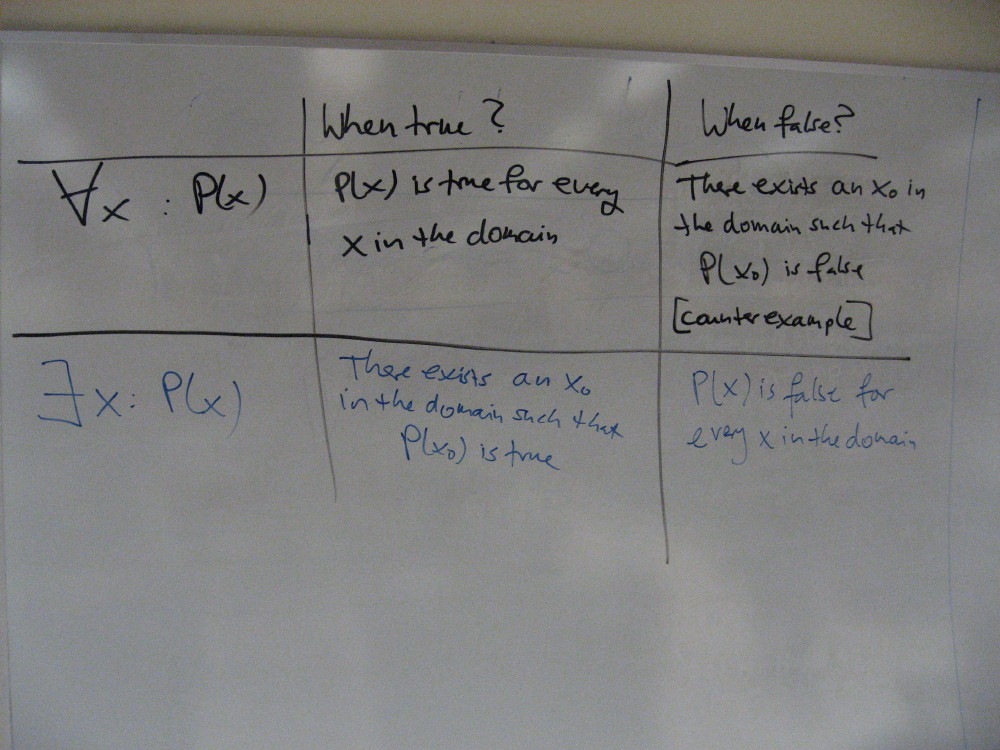 When true?
When false?
∀x : P(x)
P(x) is true for every
x in the domain
There exists an x₀ in
the domain such that
P(x₀) is false
[counterexample]
∃x : P(x)
There exists an x₀
in the domain such that
P(x₀) is true
P(x) is false for
every x in the domain